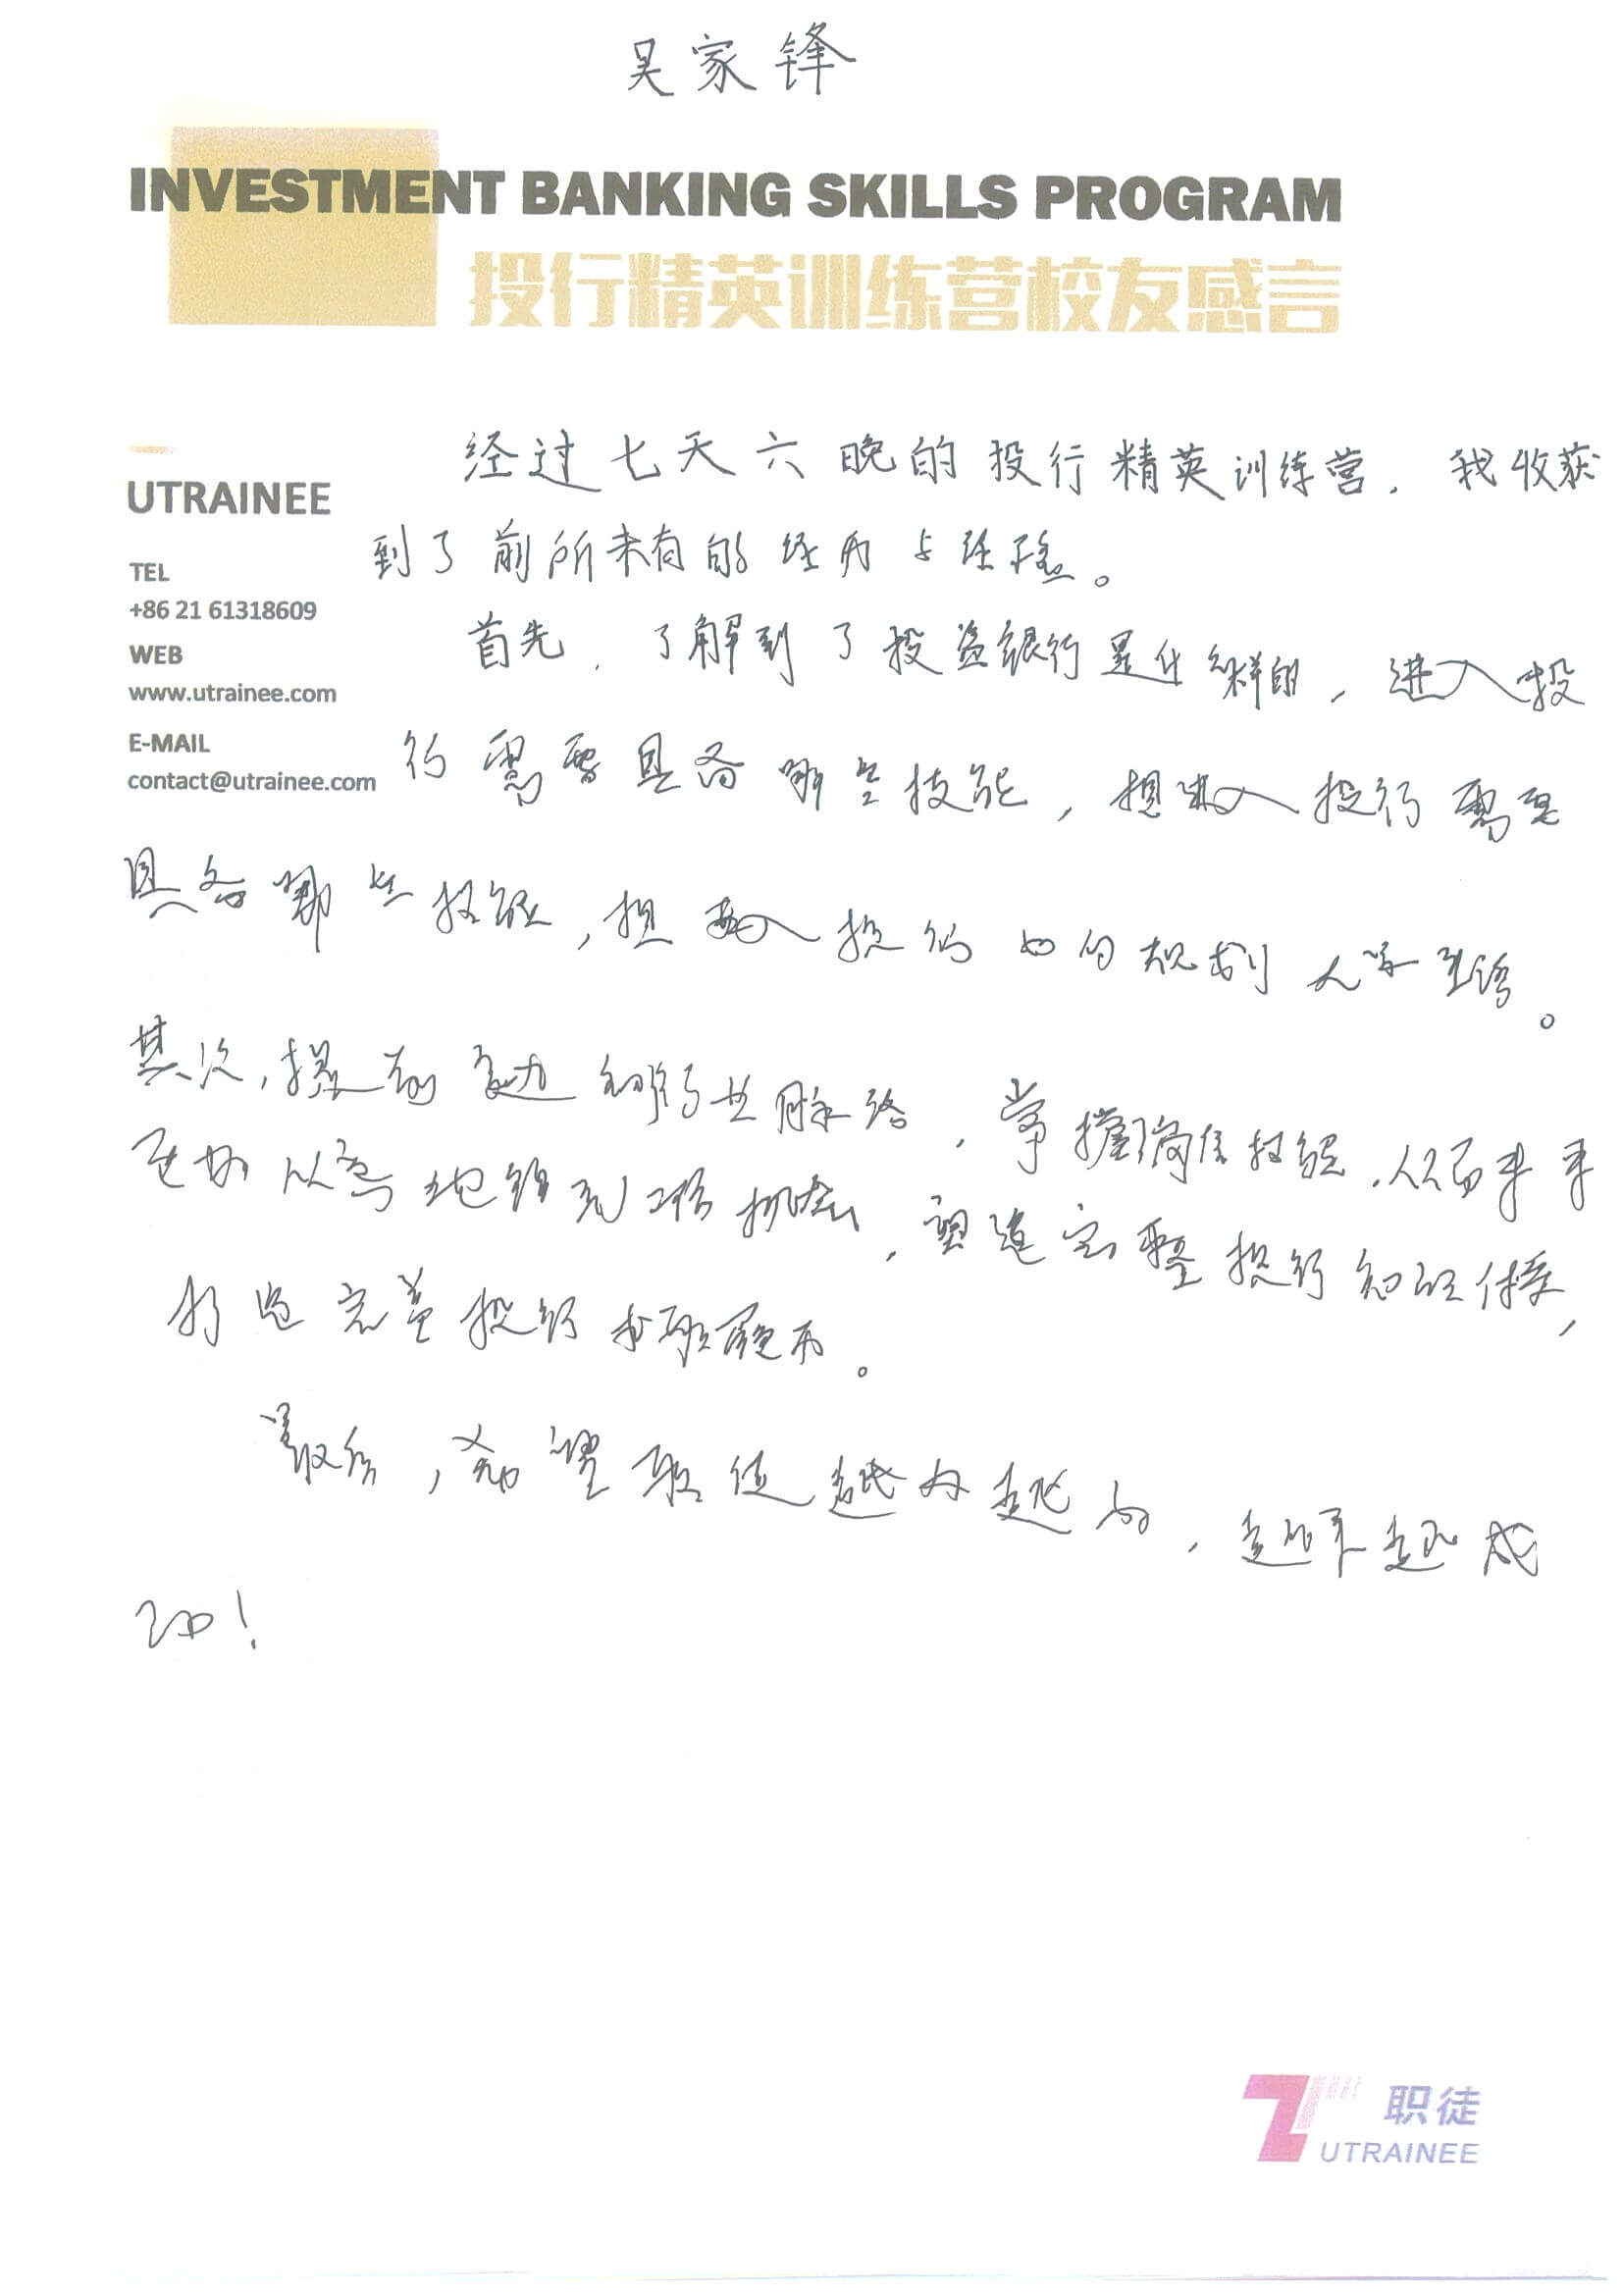 吴家锋
INVESTMENT BANKING SKILLS PROGRAM
投行精英训练营校友感言
经过七天六晚的投行精英训练营，我收获
到了前所未有的经历与经验。
首先，了解到了投资银行是什么样的，进入投
行需要具备哪些技能，想进入投行需要
具备哪些技能，想进入投行如何规划大学生涯。
其次，提前 行业脉络，掌握岗位技能，从而
更好 以 地 ，塑造完整投行知识体系，
打造完善投行求职履历。
最后，希望职徒越办越好，越来越成
功！
UTRAINEE
TEL
+86 21 61318609
WEB
www.utrainee.com
E-MAIL
contact@utrainee.com
职徒
UTRAINEE